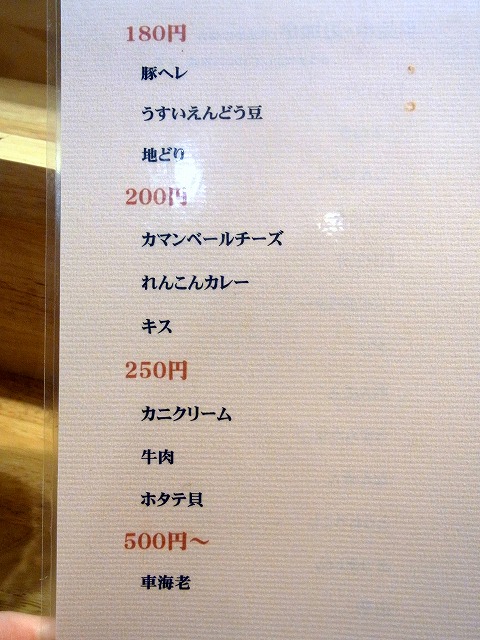 180円
豚ヘレ
うすいえんどう豆
地どり
200円
カマンベールチーズ
れんこんカレー
キス
250円
カニクリーム
牛肉
ホタテ貝
500円～
車海老